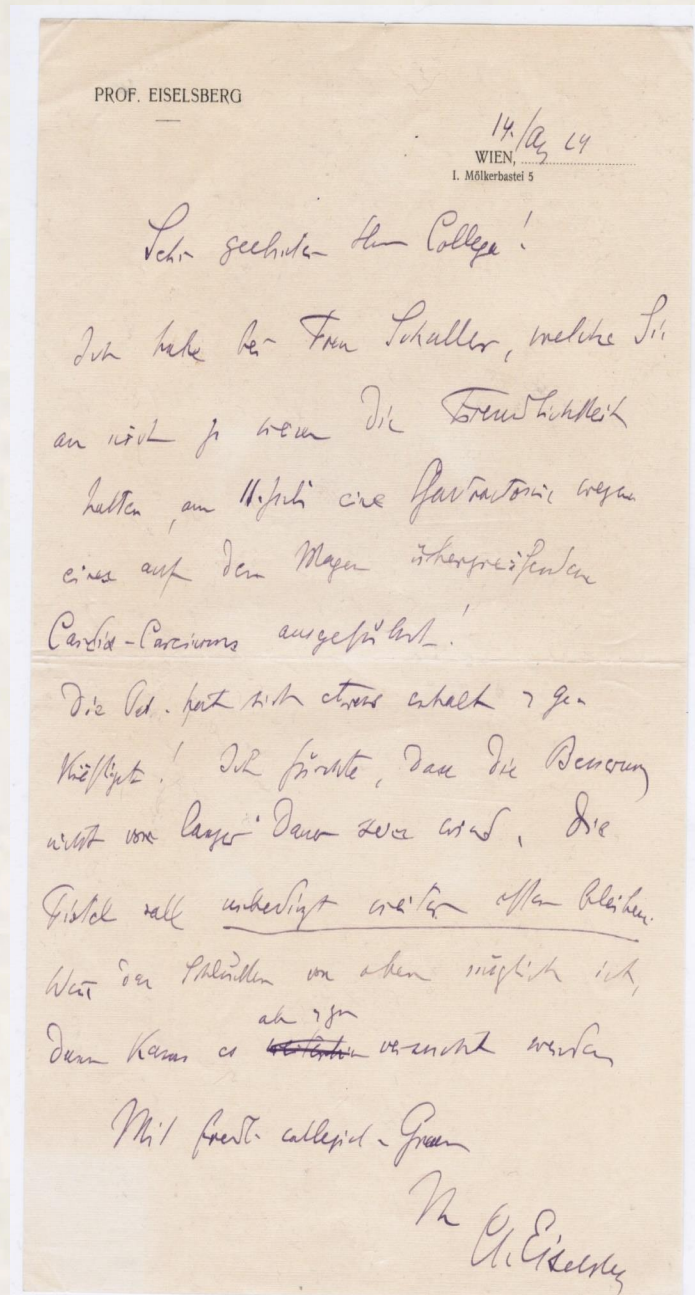 PROF. EISELSBERG
14./Aug 24
WIEN,
I. Mölkerbastei 5
Sehr geehrter Herr College!
Ich habe bei Frau Schaller, welche Sie
an mich zu weisen die Freundlichkeit
hatten, am 11. Juli eine Gastrostomie wegen
eines auf den Magen übergreifenden
Cardia-Carcinoms ausgeführt!
Die Pat. hat sich etwas erholt u ge-
kräftigt! Ich fürchte, dass die Besserung
nicht von langer Dauer sein wird. Die
Fistel soll unbedingt weiter offen bleiben.
Wenn das Schlucken von oben möglich ist,
ab u zu
dann kann es versucht werden
Mit fredl. collegial. Grüssen
Ihr
Eiselsberg